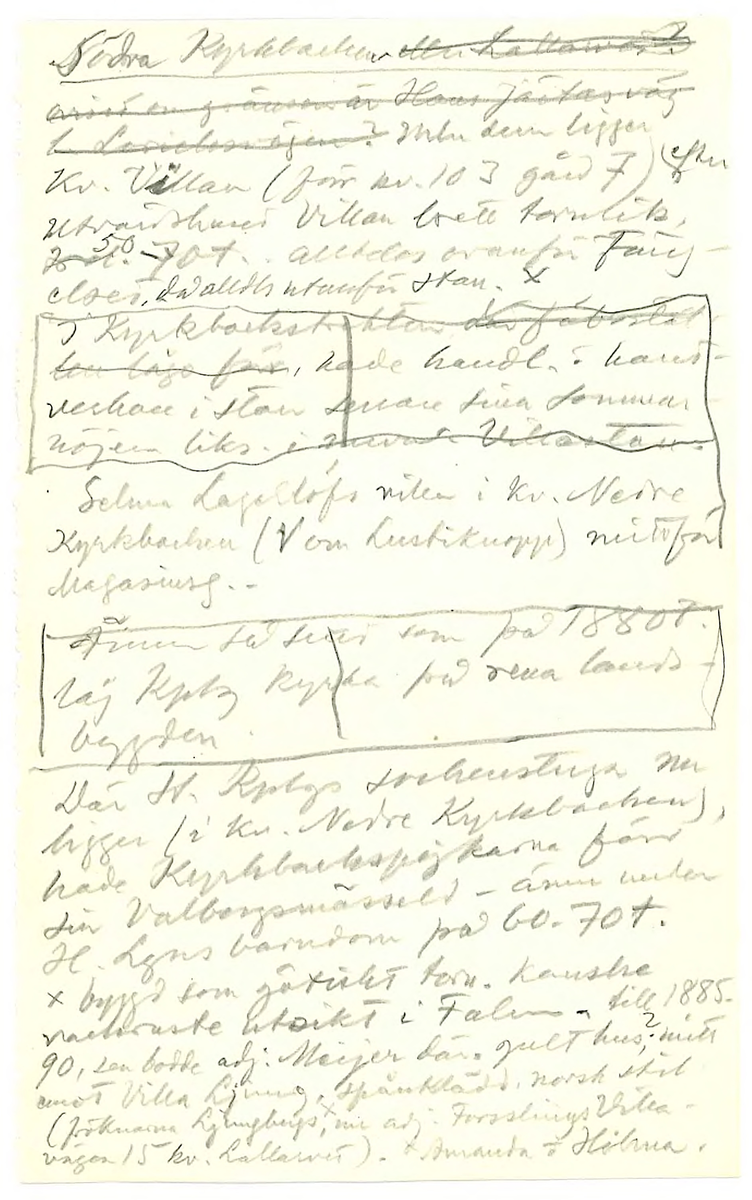 Södra Kyrkbacken eller Lallarvet?
Hans Järtas väg
? Inom dem ligger
Kv. Villan (förr nr. 103 gård 7) efter
utvärdshuset Villan lsett tornlik.
50-70t. alldeles ovanför Fäng-
elset, då alldeles utanför stan. x
I Kyrkbackstrakten där fäbostäl-
len låge förr, hade handl. o. hant-
verkare i stan senare sina sommar-
nöjen liks. i Villastan.
Selma Lagerlöfs villa i kv. Nedre
Kyrkbacken (V om Lustiknopp) mittför
Magasinsg. -
Ännu så sent som på 1880t.
låg Kpbg kyrka på rena lands-
bygden.
Där St. Kpbgs sockenstuga nu
ligger (i kv. Nedre Kyrkbacken),
hade Kyrkbackspojkarna förr
sin Valborgsmässeld - ännu under
H. Lgns barndom på 60-70t.
x byggd som götiskt torn. Kanske
vackraste utsikt i Falun. till 1885-
90, sen bodde adj. Meijer där. gult hus, mitt
emot Villa Ljung, spånklädd. norsk stil
(fröknarna Ljungbergs, x nu adj. Forsslings Villa-
vägen 15 kv. Lallarvet). x Amanda o Hilma.